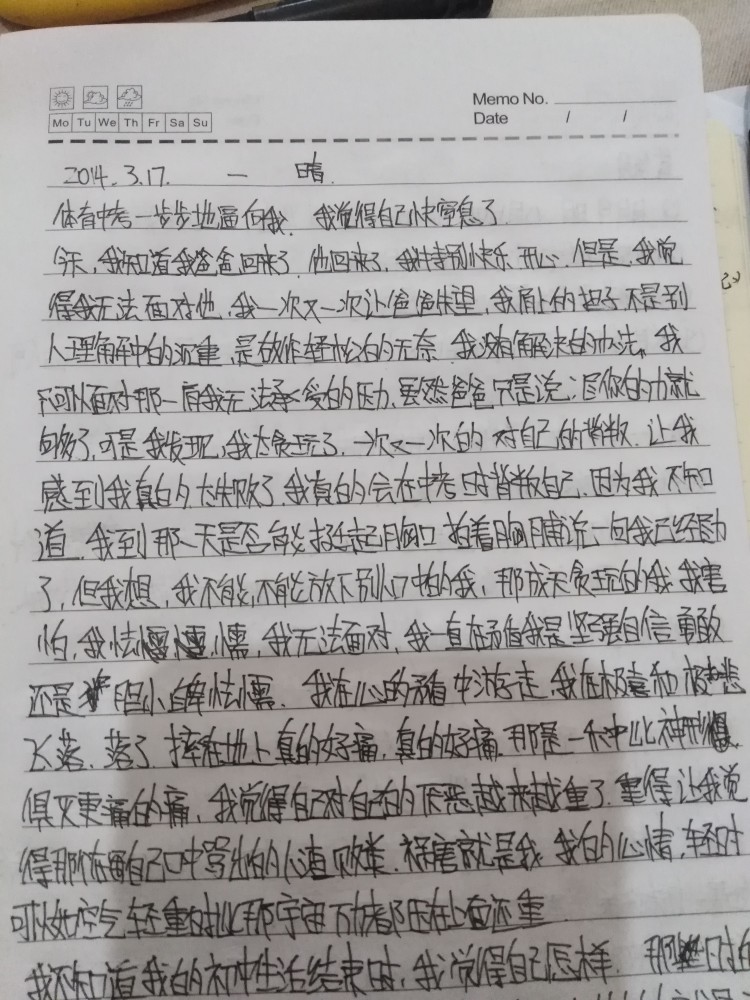 Memo No.
Mo Tu We Th Fr Sa Su
Date / /
2014.3.17. 一 晴.
体育中考一步步地逼向我. 我觉得自己快窒息了
今天,我知道我爸爸回来了.他回来了,我特别快乐 开心.但是,我觉
得我无法面对他,我一次又一次让爸爸失望,我肩上的担子不是别
人理解中的沉重,是故作轻松的无奈.我没有解决的办法,我
不可以面对那一肩我无法承受的压力.虽然爸爸只是说:尽你的力就
够了,可是我发现,我太贪玩了.一次又一次的对自己的背叛.让我
感到我真的太失败了.我真的会在中考时背叛自己.因为我不知
道.我到那一天是否能挺起胸口 拍着胸脯说一句我已经尽力
了,但我想,我不能,不能放下别人口中的我,那成天贪玩的我.我害
怕,我怯懦,我无法面对,我一直在矛盾我是坚强自信勇敢
还是胆小自卑怯懦.我在心的矛盾中游走.我在极喜和极悲
飞落.落了.摔在地上真的好痛,真的好痛.那是一种比神形
俱灭更痛的痛,我觉得自己对自己的厌恶越来越重了.重得让我觉
得那个在自己口中写出的人渣败类.祸害就是我.我的心情,轻时
可以如空气 轻 重时比那宇宙万物都压在上面还重
我不知道我的初中生活结束时,我觉得自己怎样.那些日